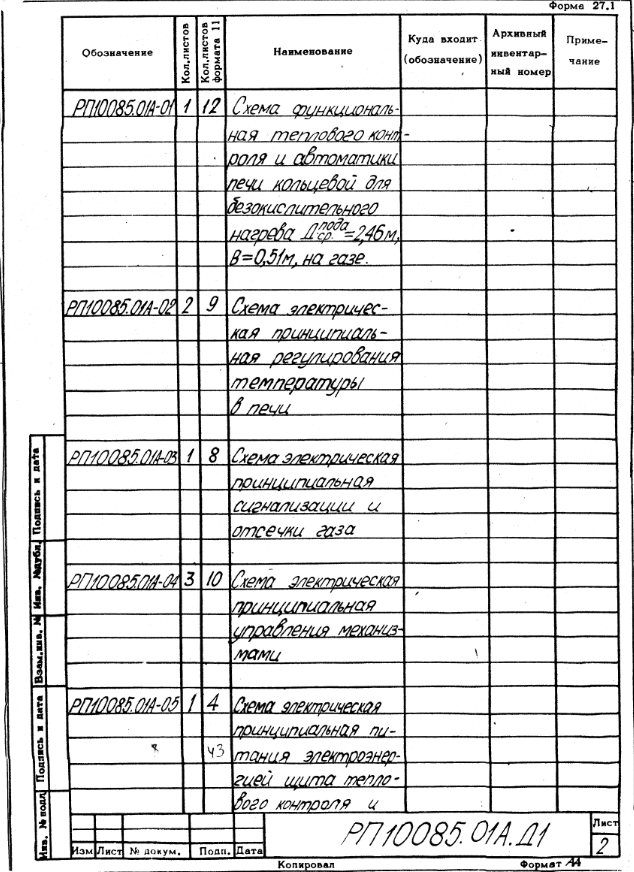 Форма 27.1
Обозначение
Кол.листов
Кол.листов формата 11
Наименование
Куда входит (обозначение)
Архивный инвентар-ный номер
Приме-чание
РП10085.01А-01 1 12 Схема функциональ-
ная теплового конт-
роля и автоматики
печи кольцевой для
безокислительного
нагрева Д пода ср. =2,46м,
В=0,51м, на газе.
РП10085.01А-02 2 9 Схема электричес-
кая принципиаль-
ная регулирования
температуры
в печи
РП10085.01А-03 1 8 Схема электрическая
принципиальная
сигнализации и
отсечки газа
РП10085.01А-04 3 10 Схема электрическая
принципиальная
управления механиз-
мами
РП10085.01А-05 1 4 Схема электрическая
принципиальная пи-
43 тания электроэнер-
гией щита тепло-
вого контроля и
Подпись и дата
Инв. №дубл.
Взам.инв. №
Подпись и дата
Инв. №подл
Изм Лист № докум. Подп. Дата
РП10085.01А.Д1
Лист
2
Копировал
Формат А4